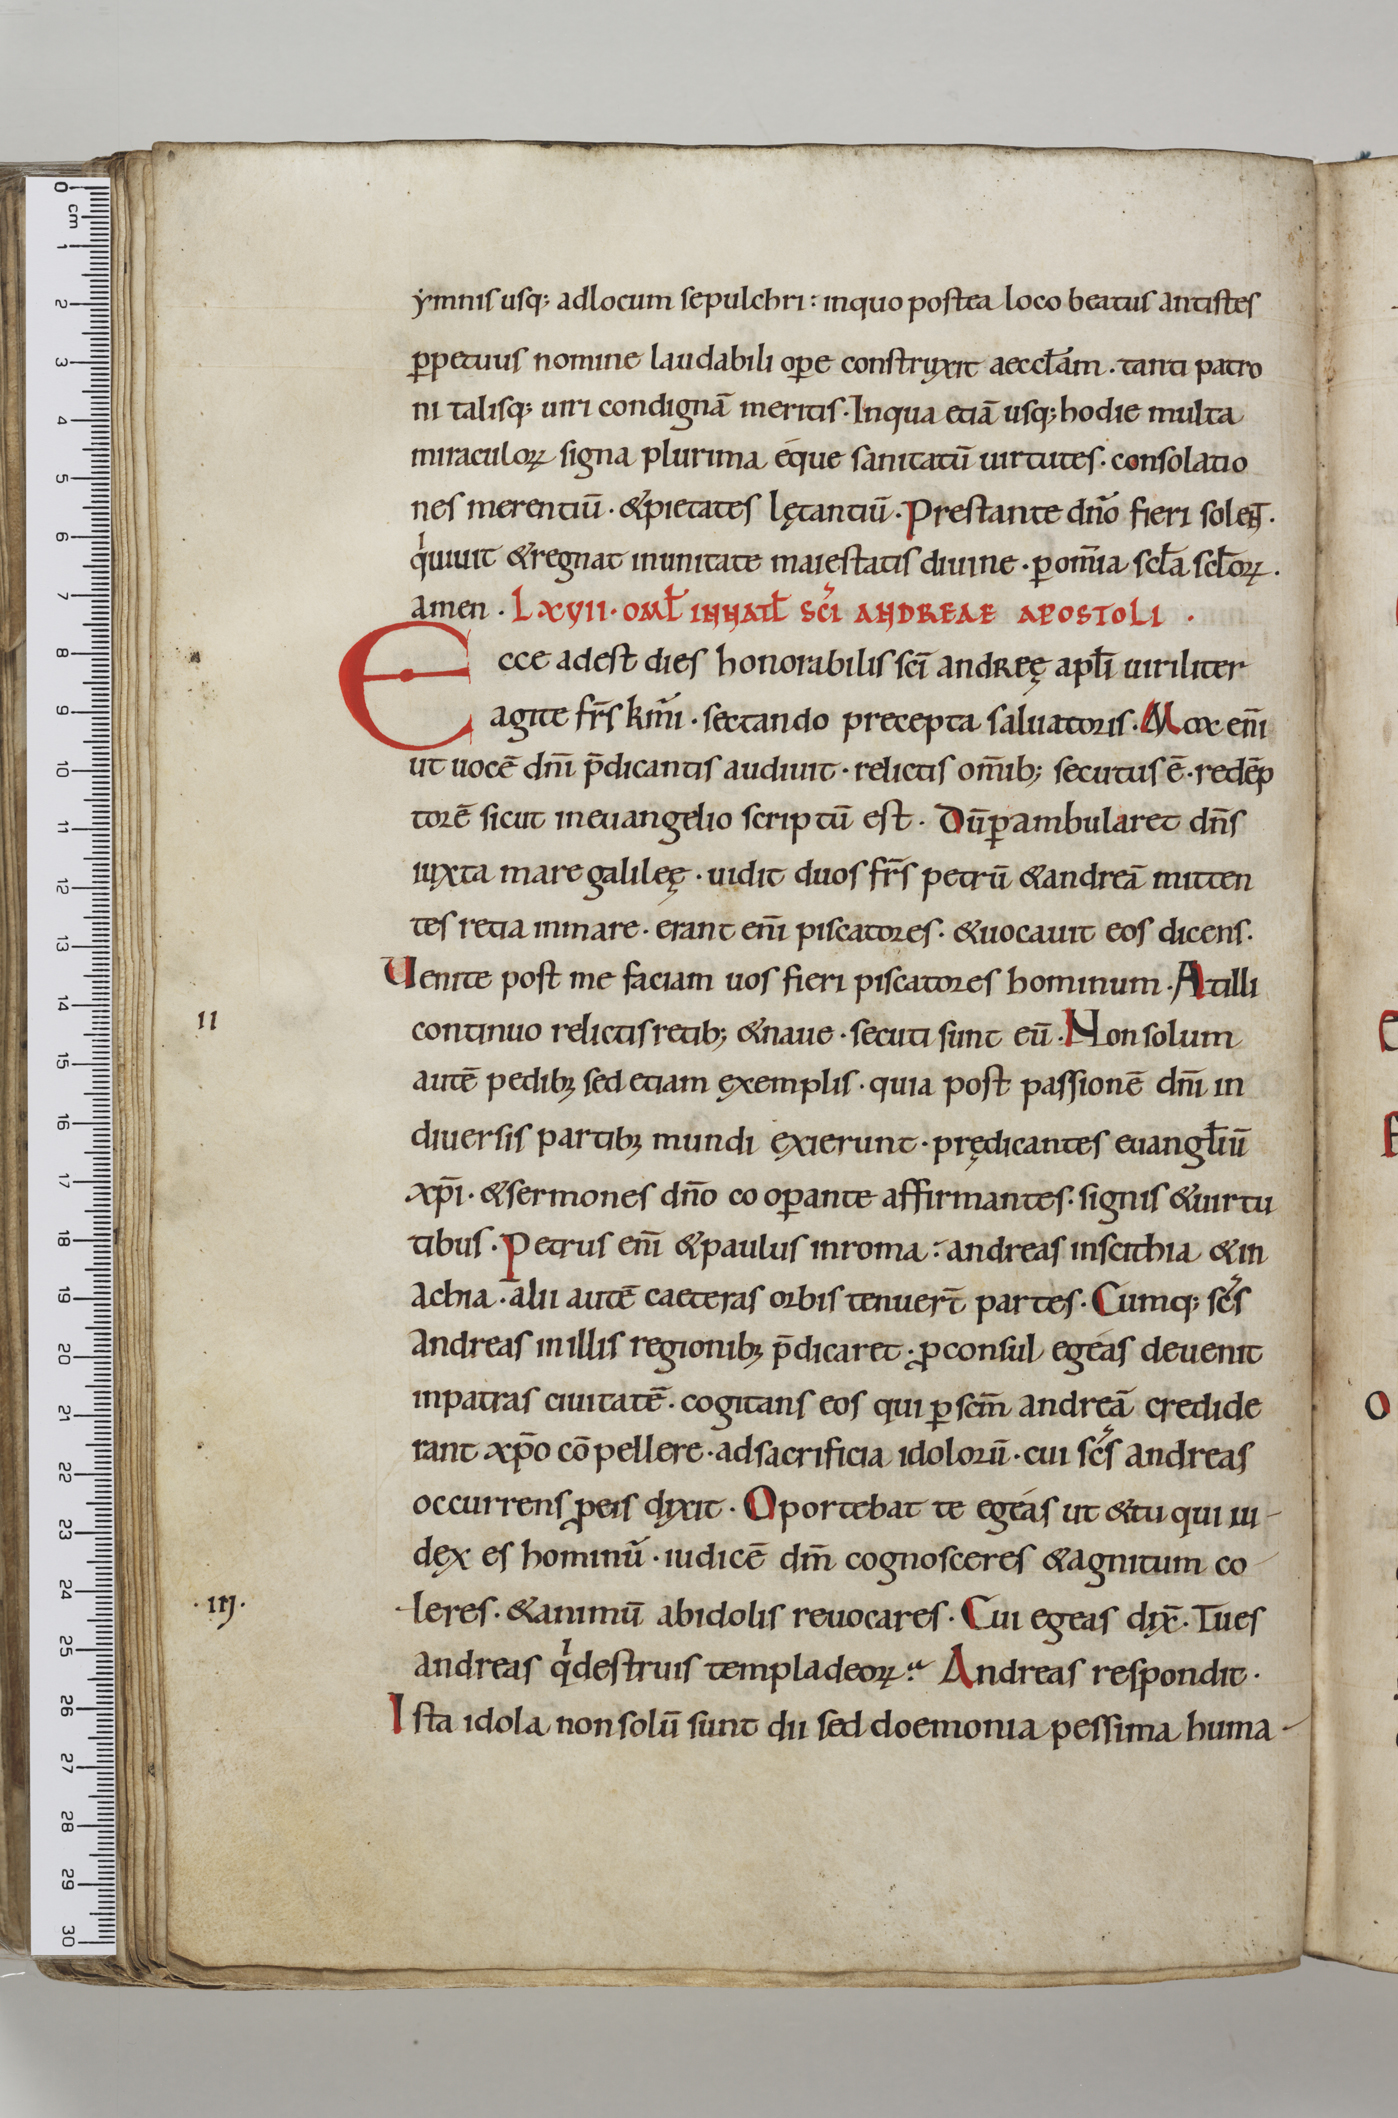 ẏmnis usq; adlocum sepulchri : inquo postea loco beatus antistes
ꝑpetuus nomine laudabili oꝑe construxit aeccl̄am . tanti patro
ni talisq; uiri condignā meritis . Inqua etiā usq; hodie multa
miraculoꝝ signa plurima éque sanitatū uirtutes . consolatio
nes merentiū . &pietates lętantiū . Prestante dn̄o fieri solen̄t .
qͥuiuit &regnat inunitate maiestatis diuine . ꝑ om̄ia scl̄a scl̄oꝝ .
amen . LXVII . OML̄ INNATL̄ SC̄I ANDREAE APOSTOLI .
Ecce adest dies honorabilis sc̄i andreę apl̄i uiriliter
agite fr̄s km̄i . sectando precepta saluatoris . Mox eni̅
ut uocē dn̄i p̄dicantis audiuit . relictis om̄ib; secutus ē . redēp
torē sicut ineuangelio scriptū est . Dū ꝑambularet dn̄s
iuxta mare galileę . uidit duos fr̄s petrū &andreā mitten
tes retia inmare . erant eni̅ piscatores . &uocauit eos dicens .
Uenite post me faciam uos fieri piscatores hominum . Atilli
II
continuo relictis retib; &naue . secuti sunt eū . Non solum
autē pedibꝫ sed etiam ęxemplis . quia post passionē dn̄i in
diuersis partibꝫ mundi ęxierunt . prędicantes euangl̄iū
xp̄i . &sermones dn̄o co oꝑante affirmantes . signis &uirtu
tibus . Petrus eni̅ &paulus inroma : andreas inscithia &in
achia . alii autē caeteras orbis tenuer̄t partes . Cumq; sc̄s
andreas inillis regionibꝫ p̄dicaret . ꝓconsul egéas deuenit
inpatras ciuitatē . cogitans eos qui ꝑ scm̄ andreā credide
rant xp̄o cōpellere . adsacrificia idolorū . cui sc̄s andreas
occurrens ꝓeis dixit . Oportebat te egéas ut &tu qui iu-
dex es hominū . iudicē dm̄ cognosceres &agnitum co-
. III .
leres . &animū abidolis reuocares . Cui egeas dix̄ . Tues
andreas qͥdestruis templadeoꝝ : Andreas respondit .
Ista idola non solū sunt dii sed doemonia pessima huma-
0 cm 1 2 3 4 5 6 7 8 9 10 11 12 13 14 15 16 17 18 19 20 21 22 23 24 25 26 27 28 29 30